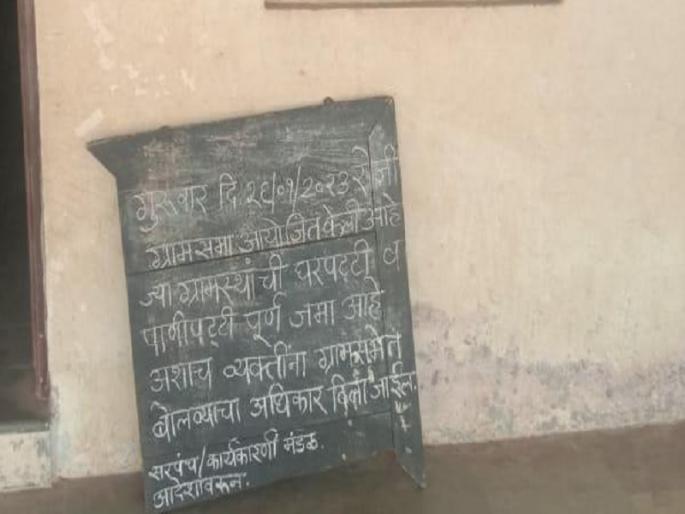 गुरुवार दि २६/०१/२०२३ रोजी
ग्रामसभा आयोजित केली आहे
ज्या ग्रामस्थांची घरपट्टी व
पाणीपट्टी पूर्ण जमा आहे
अशाच व्यक्तींना ग्रामसभेत
बोलव्याचा अधिकार दिला जाईल.
सरपंच/कार्यकारणी मंडळ.
आदेशावरून.